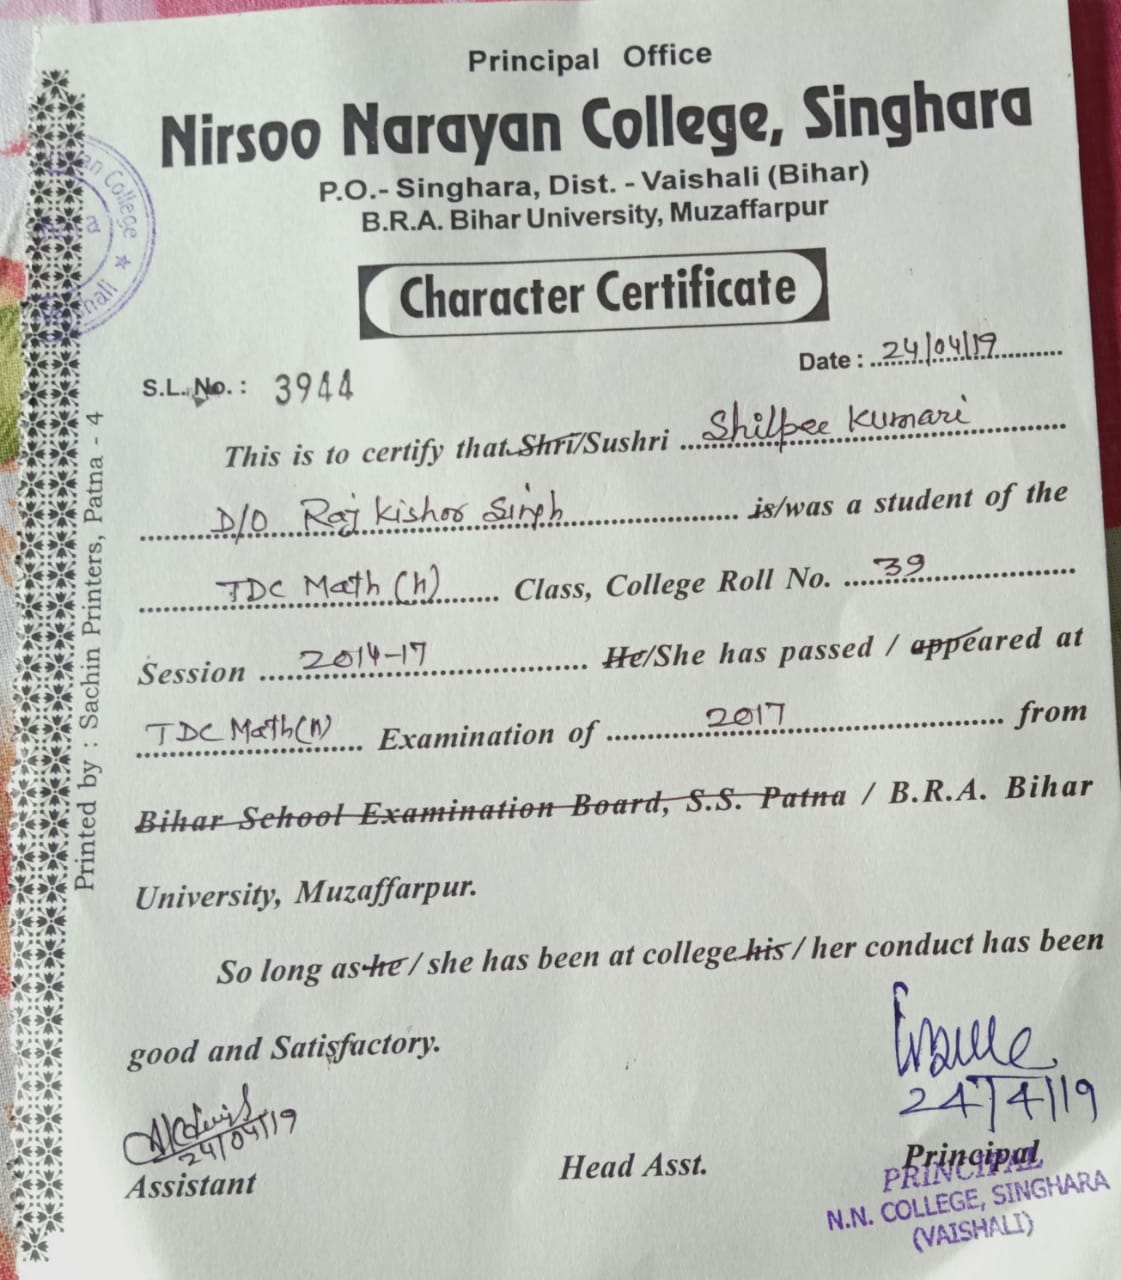 Principal Office
Nirsoo Narayan College, Singhara
P.O.- Singhara, Dist. - Vaishali (Bihar)
B.R.A. Bihar University, Muzaffarpur
Character Certificate
Date : 24/04/19
S.L. No. : 3944
This is to certify that Shri/Sushri Shilpee Kumari
D/O Raj Kishor Singh is/was a student of the
TDC Math (h) Class, College Roll No. 39
Session 2014-17 He/She has passed / appeared at
TDC Math(h) Examination of 2017 from
Bihar School Examination Board, S.S. Patna / B.R.A. Bihar
University, Muzaffarpur.
So long as he / she has been at college his / her conduct has been
good and Satisfactory.
24/04/19
24/4/19
Assistant
Head Asst.
Principal
PRINCIPAL
N.N. COLLEGE, SINGHARA
(VAISHALI)
Printed by : Sachin Printers, Patna - 4
College